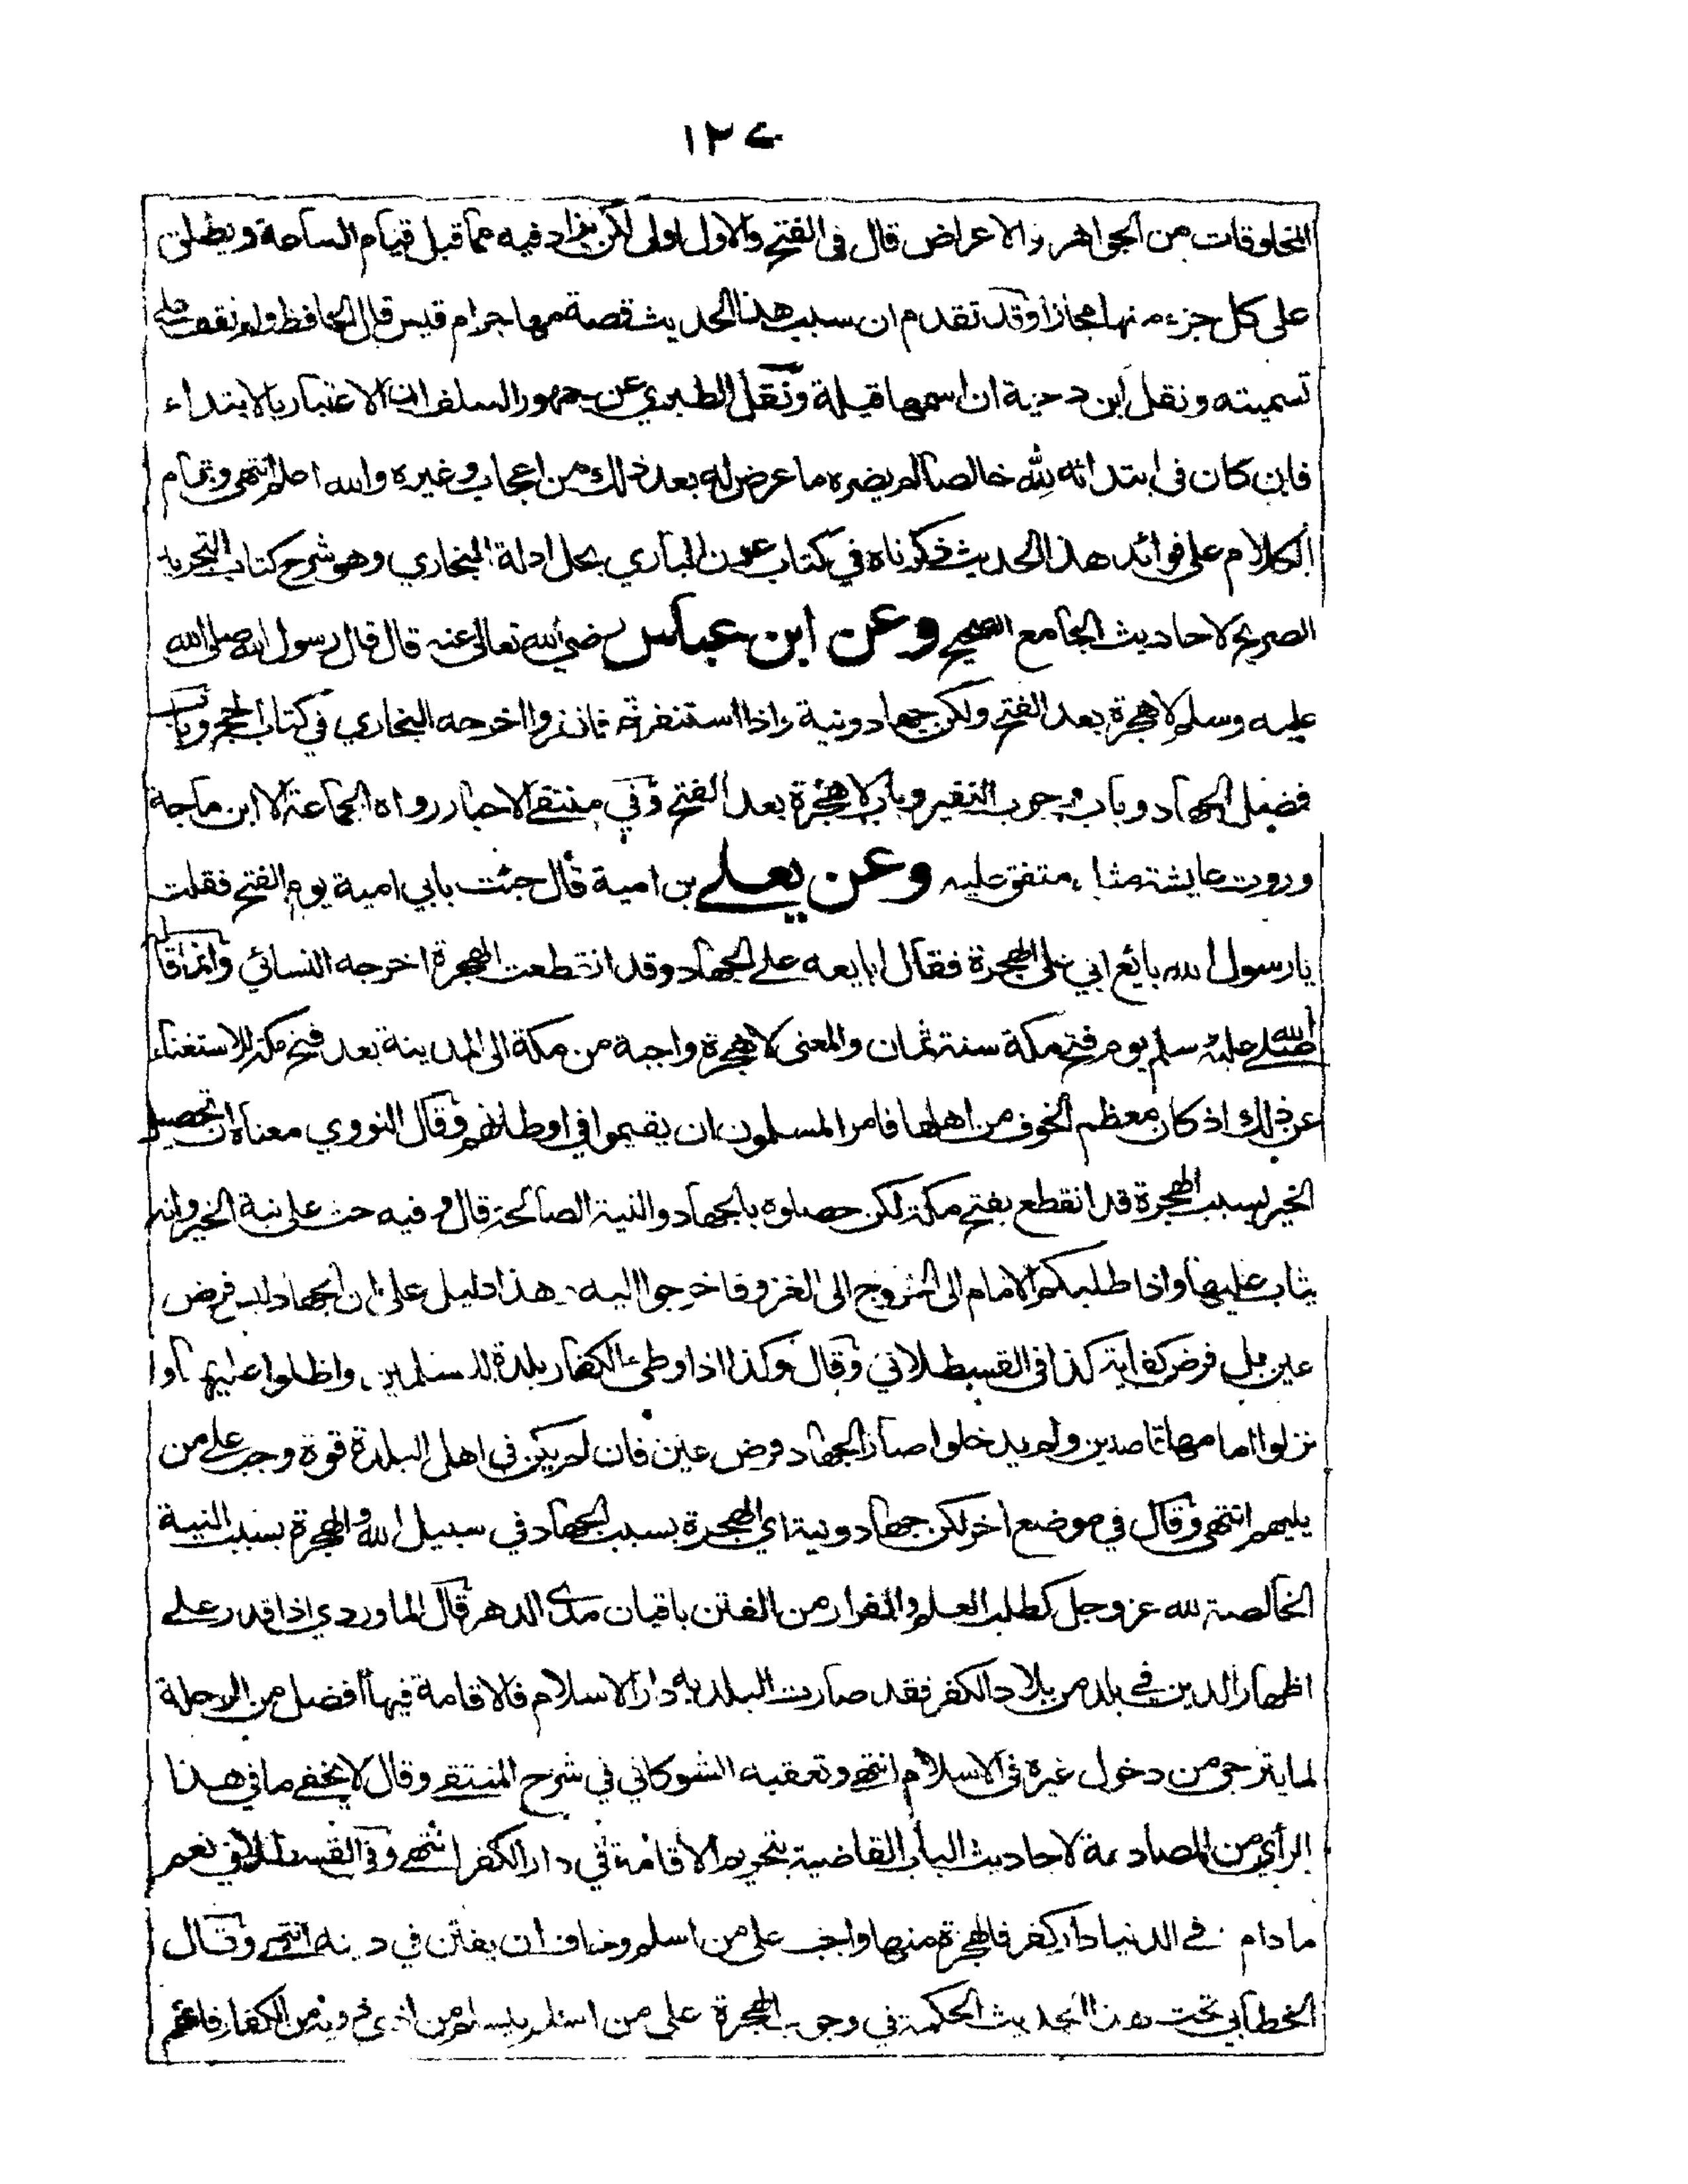 ١٢٤
المخلوقات من الجواهر والاعراض قال في الفتح والاول اولى لكن يزاد فيه مما قبل قيام الساعة ويطلق
على كل جزء منها مجازا وقد تقدم ان سبب هذا الحديث قصة مهاجر ام قيس قال الحافظ ولم نقف على
تسميته ونقل ابن دحية ان اسمها قيلة ونقل الطبري عن جمهور السلف ان الاعتبار بالابتداء
فان كان في ابتدائه لله خالصا لم يضره ما عرض له بعد ذلك من اعجاب وغيره والله اعلم انتهى وتمام
الكلام على فوائد هذا الحديث ذكرناه في كتاب عون الباري بحل ادلة البخاري وهو شرح كتاب التجريد
الصريح لاحاديث الجامع الصحيح وعن ابن عباس رضي الله تعالى عنه قال قال رسول الله صلى الله
عليه وسلم لا هجرة بعد الفتح ولكن جهاد ونية واذا استنفرتم فانفروا اخرجه البخاري في كتاب الحج وباب
فضل الجهاد وباب وجوب النفير وباب لا هجرة بعد الفتح وفي منتقى الاخبار رواه الجماعة الا ابن ماجة
وروت عايشة مثله متفق عليه وعن يعلى بن امية قال جئت بابي امية يوم الفتح فقلت
يا رسول الله بائع ابي على الهجرة فقال ابايعه على الجهاد وقد انقطعت الهجرة اخرجه النسائي وانما قال
صلى الله عليه وسلم يوم فتح مكة سنة ثمان والمعنى لا هجرة واجبة من مكة الى المدينة بعد فتح مكة للاستغناء
عن ذلك اذ كان معظم الخوف من اهلها فامر المسلمون ان يقيموا في اوطانهم وقال النووي معناه ان تحصيل
الخير بسبب الهجرة قد انقطع بفتح مكة لكن حصلوه بالجهاد والنية الصالحة قال وفيه حث على نية الخير وانه
يثاب عليها واذا طلبكم الامام الى الخروج الى الغزو فاخرجوا اليه هذا دليل على ان الجهاد ليس فرض
عين بل فرض كفاية كذا في القسطلاني وقال وكذا اذا وطئ الكفار بلدة للمسلمين واظلوا عليها او
نزلوا امامها قاصدين ولم يدخلوا صار الجهاد فرض عين فان لم يكن في اهل البلدة قوة وجب على من
يليهم انتهى وقال في موضع اخر لكن جهاد ونية اي الهجرة بسبب الجهاد في سبيل الله والهجرة بسبب النية
الخالصة لله عز وجل كطلب العلم والفرار من الفتن باقيان مدى الدهر قال الماوردي اذا قدر على
اظهار الدين في بلد من بلاد الكفر فقد صارت البلد به دار الاسلام فالاقامة فيها افضل من الرحلة
لما يترجى من دخول غيره في الاسلام انتهى وتعقبه الشوكاني في شرح المنتقى وقال لا يخفى ما في هذا
الرأي من المصادمة لاحاديث الباب القاضية بتحريم الاقامة في دار الكفر انتهى وفي القسطلاني نعم
ما دام في الدنيا دار كفر فالهجرة منها واجب على من اسلم وخاف ان يفتن في دينه انتهى وقال
الخطابي تحت هذا الحديث الحكمة في وجوب الهجرة على من اسلم ليسلم من اذى ذويه من الكفار فانهم